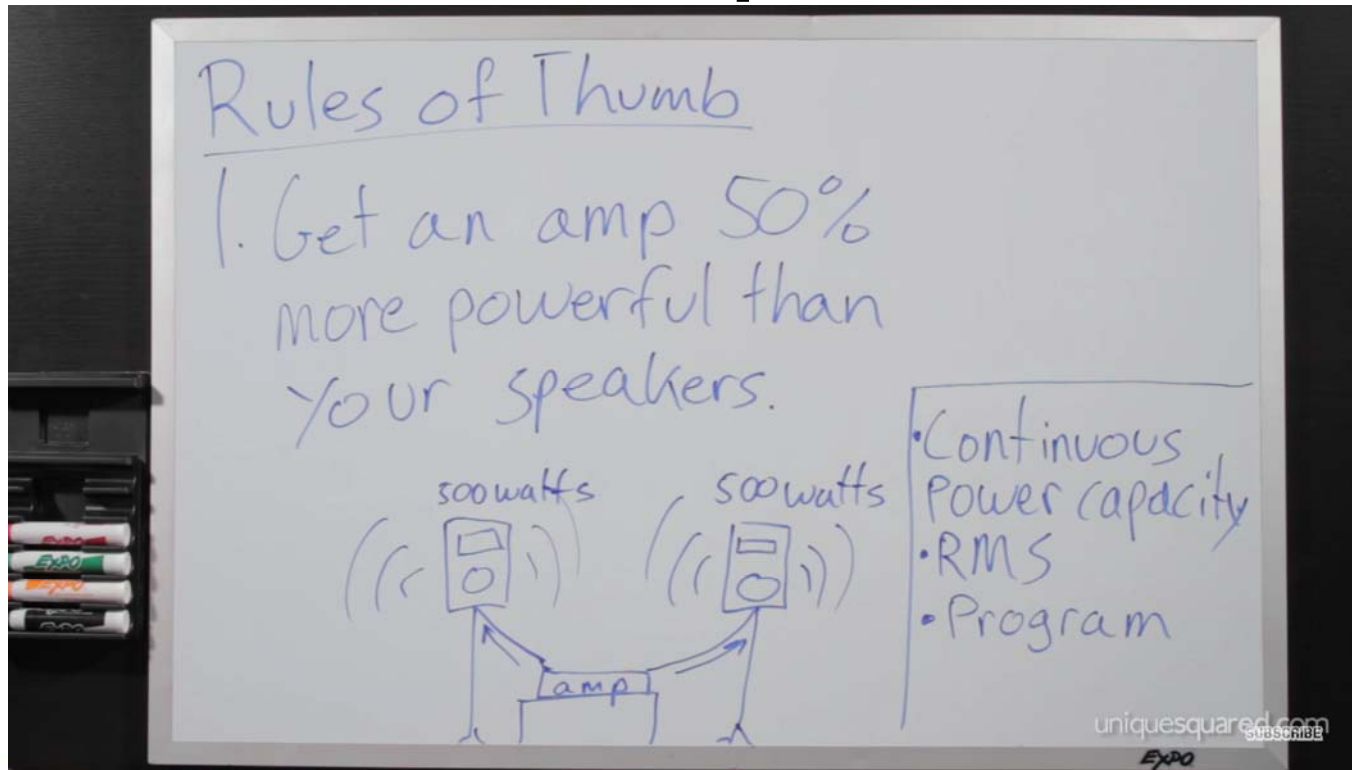 Rules of Thumb
1. Get an amp 50%
more powerful than
your speakers.
500 watts
500 watts
amp
• Continuous
Power capacity
• RMS
• Program
EXPO
EXPO
EXPO
uniquesquared.com
SUBSCRIBE
EXPO